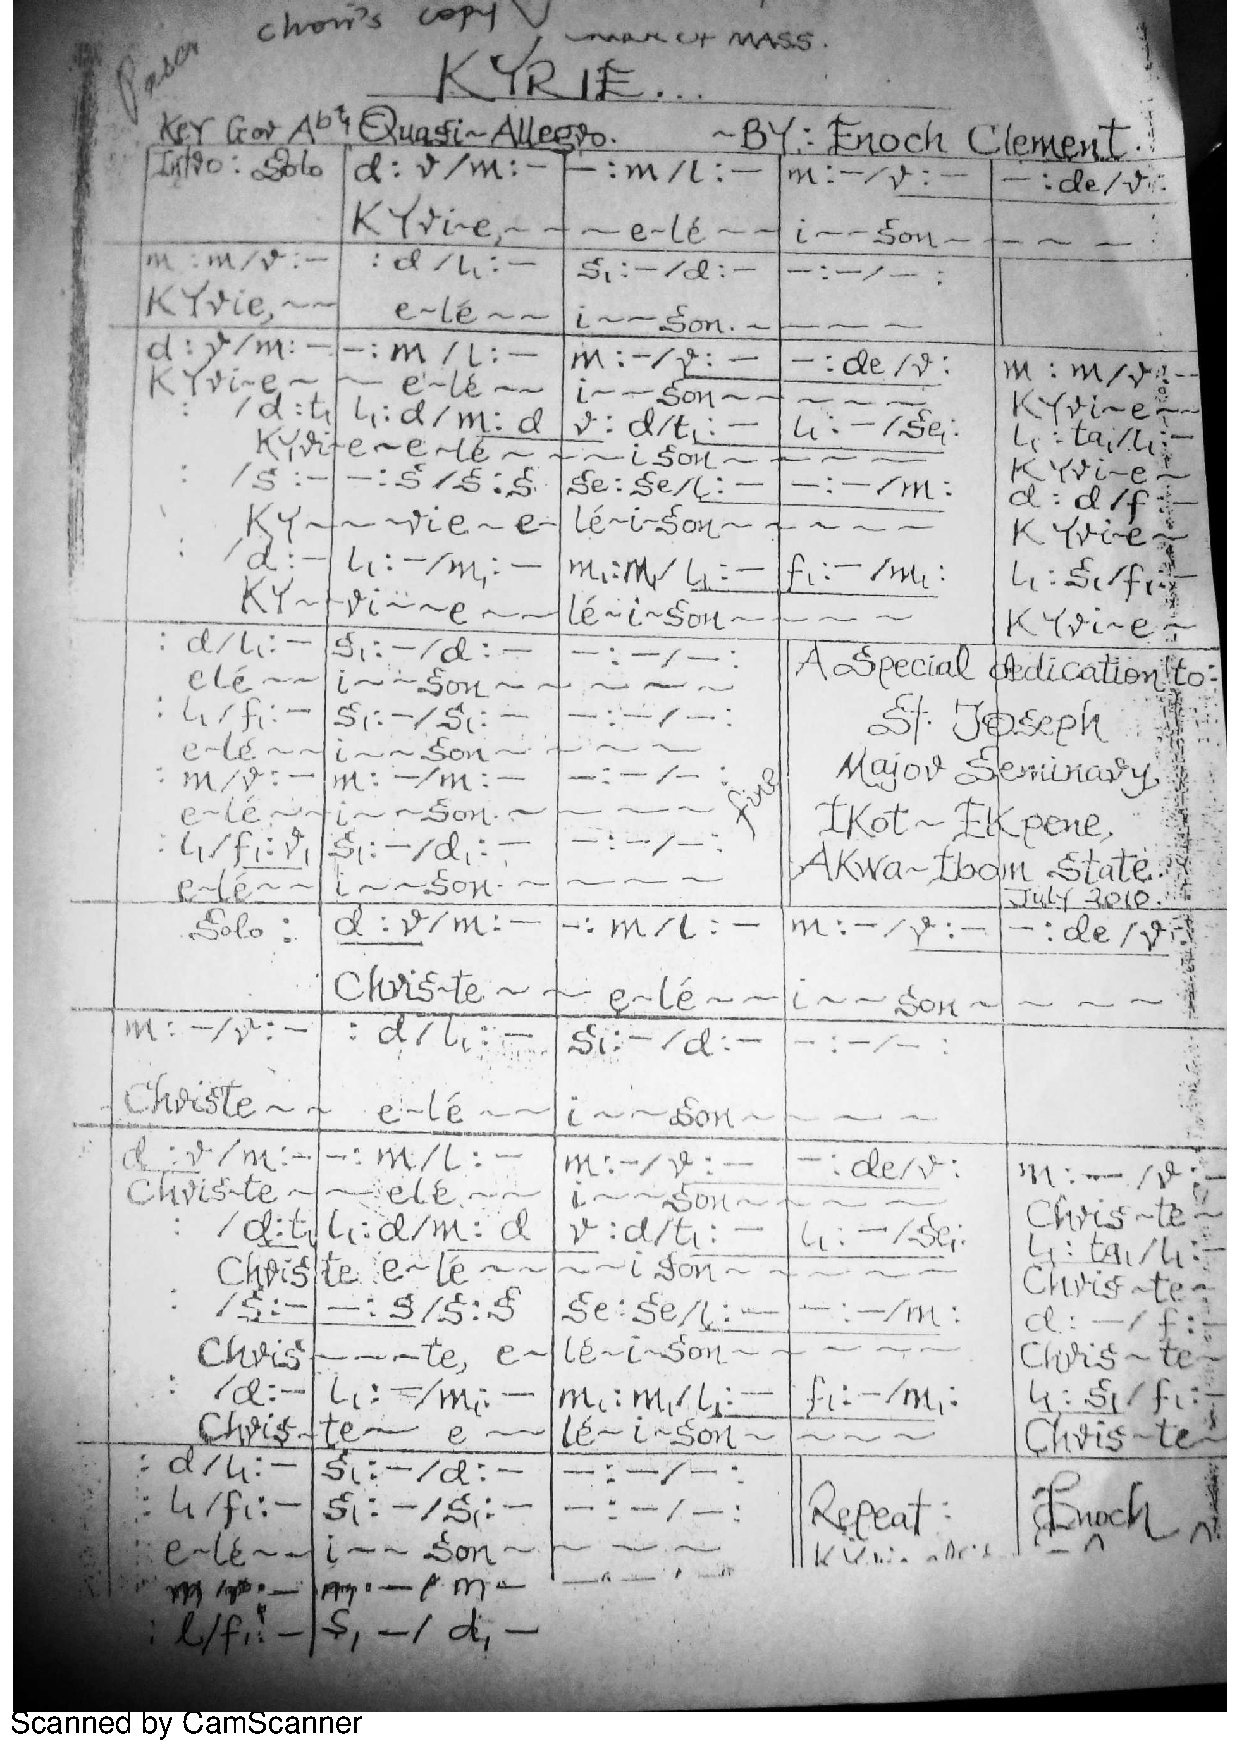 choir's copy
MASS.
KYRIE...
Key G or Ab Quasi~Allegro. ~BY: Enoch Clement.
Intro: Solo d: r/m: – –: m/l: – m: –/r: – –: de/r:
KYri-e, ~ ~ ~ e-lé ~ ~ i ~ ~ Son ~ ~ ~ ~
m: m/r: – : d/l₁: – s₁: –/d: – –: –/–:
KYrie, ~ ~ e~lé ~ ~ i ~ ~ Son. ~ ~ ~ ~
d: r/m: – –: m/l: – m: –/r: – –: de/r: m: m/r: –
KYri-e ~ ~ e-lé ~ ~ i ~ ~ Son ~ ~ ~ ~ ~ KYri-e ~ ~
: /d: t₁ l₁: d/m: d r: d/t₁: – l₁: –/se₁: l₁: ta₁/l₁: –
KYri-e ~ e-lé ~ ~ ~ ~ i son ~ ~ ~ ~ ~ KYri-e ~
: /s: – –: s/s: s se: se/l: – –: –/m: d: d/f: –
KY ~ ~ ~ rie ~ e- lé~i~Son ~ ~ ~ ~ ~ KYri-e ~
: /d: – l₁: –/m₁: – m₁: m₁/l₁: – f₁: –/m₁: l₁: s₁/f₁: –
KY ~ ~ ri ~ ~ e ~ ~ ~ lé~i~Son ~ ~ ~ ~ KYri~e ~
: d/l₁: – s₁: –/d: – –: –/–: A Special dedication to:
elé ~ ~ i ~ ~ Son ~ ~ ~ ~ ~
: l₁/f₁: – s₁: –/s₁: – –: –/–: St. Joseph
e-lé ~ ~ i ~ ~ Son ~ ~ ~ ~
: m/r: – m: –/m: – –: –/–: fine Major Seminary,
e-lé ~ ~ i ~ ~ Son. ~ ~ ~ ~ ~ IKot~EKpene,
: l₁/f₁: r₁ s₁: –/d₁: – –: –/–: AKwa~Ibom State.
e-lé ~ ~ i ~ ~ Son. ~ ~ ~ ~ ~ July 2010.
Solo: d: r/m: – –: m/l: – m: –/r: – –: de/r:
Chris-te ~ ~ ~ e~lé ~ ~ i ~ ~ Son ~ ~ ~ ~
m: –/r: – : d/l₁: – s₁: –/d: – –: –/–:
Christe ~ ~ e~lé ~ ~ i ~ ~ Son ~ ~ ~ ~
d: r/m: – –: m/l: – m: –/r: – –: de/r: m: –/r: –
Chris-te ~ ~ ~ elé ~ ~ i ~ ~ Son ~ ~ ~ ~ ~ Chris~te ~
: /d: t₁ l₁: d/m: d r: d/t₁: – l₁: –/se₁: l₁: ta₁/l₁: –
Chris te e~lé ~ ~ ~ ~ ~ i Son ~ ~ ~ ~ ~ Chris~te ~
: /s: – –: s/s: s se: se/l: – –: –/m: d: –/f: –
Chris ~ ~ ~ ~te, e~ lé~i~Son ~ ~ ~ ~ ~ Chris~te ~
: /d: – l₁: –/m₁: – m₁: m₁/l₁: – f₁: –/m₁: l₁: s₁/f₁: –
Chris~te ~ e ~ ~ lé~i~Son ~ ~ ~ ~ Chris~te ~
: d/l₁: – s₁: –/d: – –: –/–:
: l₁/f₁: – s₁: –/s₁: – –: –/–: Repeat: Enoch
e~lé ~ ~ i ~ ~ Son ~ ~ ~ ~ ~
m/r: – m: –/m –
: l/f₁: – s₁ –/d₁ –
Scanned by CamScanner